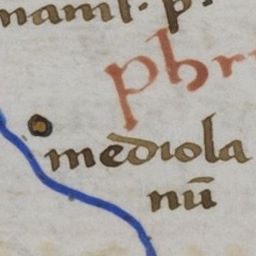 namſ. p.
phr
mediola
nū